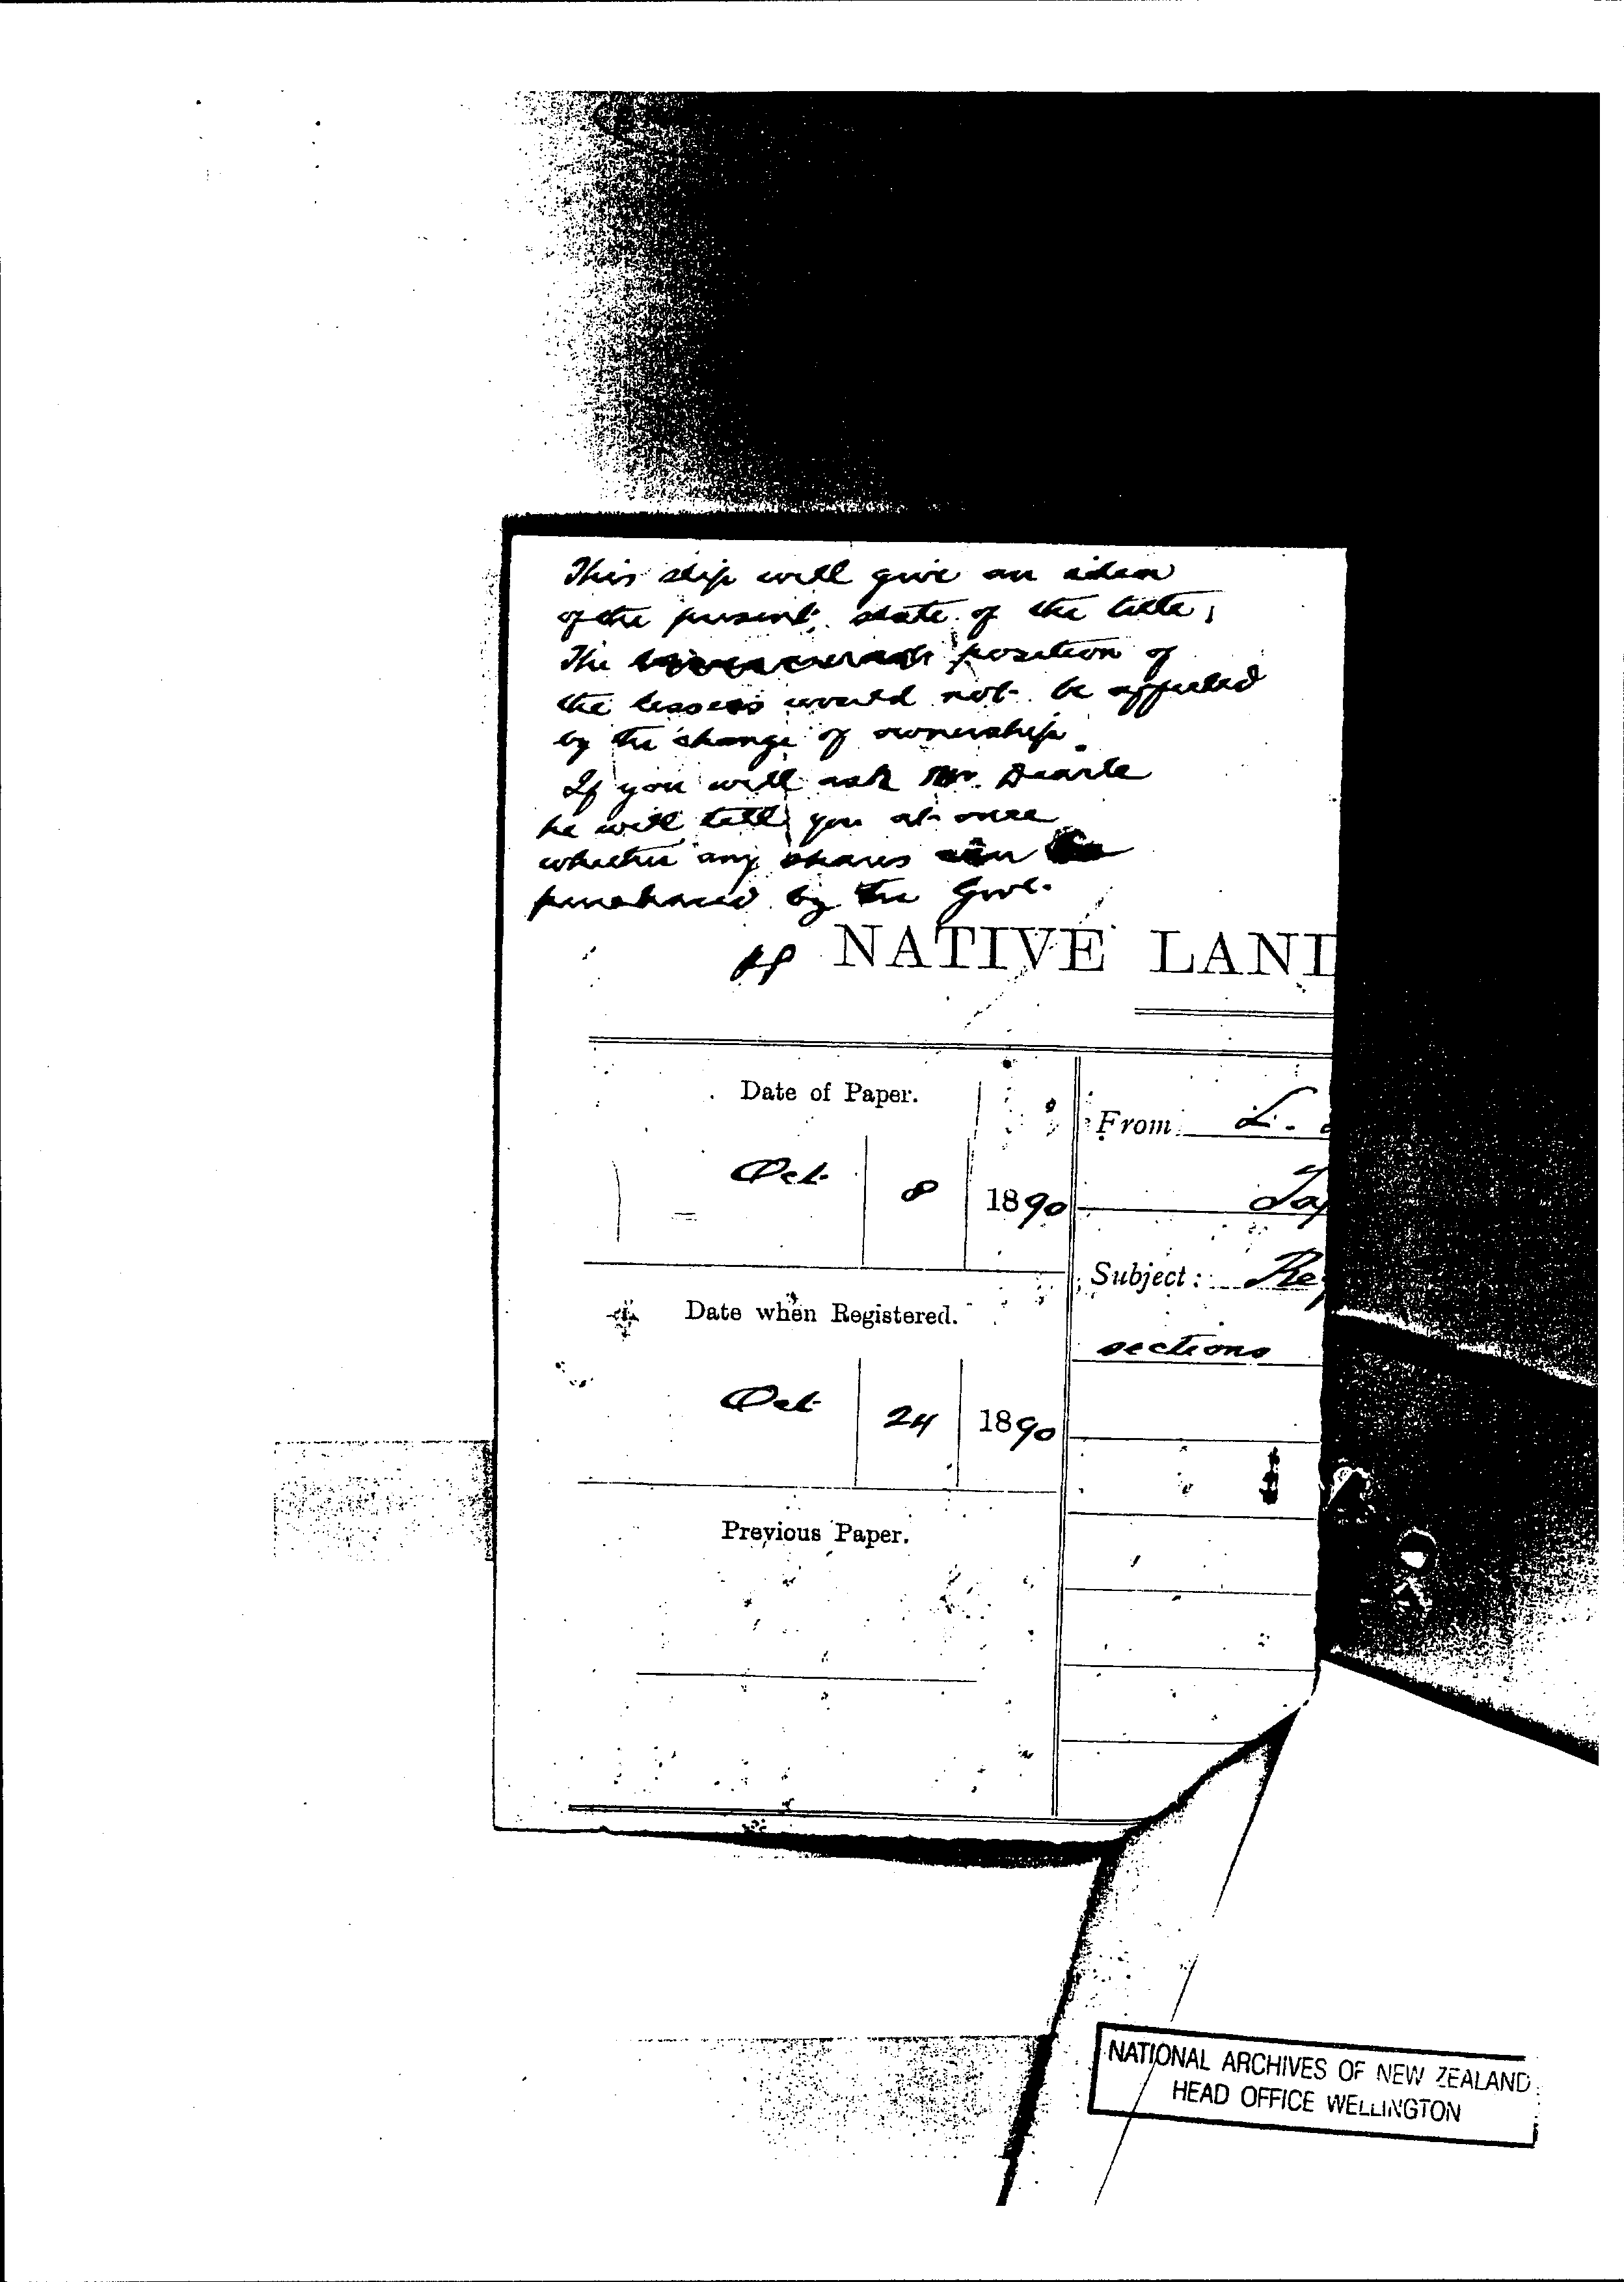 This slip will give an idea
of the present state of the title,
The position of
the lessees would not be affected
by the change of ownership.
If you will ask Mr. Dearle
he will tell you at once
whether any shares
purchased by the Govt.
NATIVE LAND
Date of Paper.
From L.
Oct 8 1890
Tay
Subject: Re
Date when Registered.
sections
Oct 24 1890
Previous Paper.
NATIONAL ARCHIVES OF NEW ZEALAND
HEAD OFFICE WELLINGTON